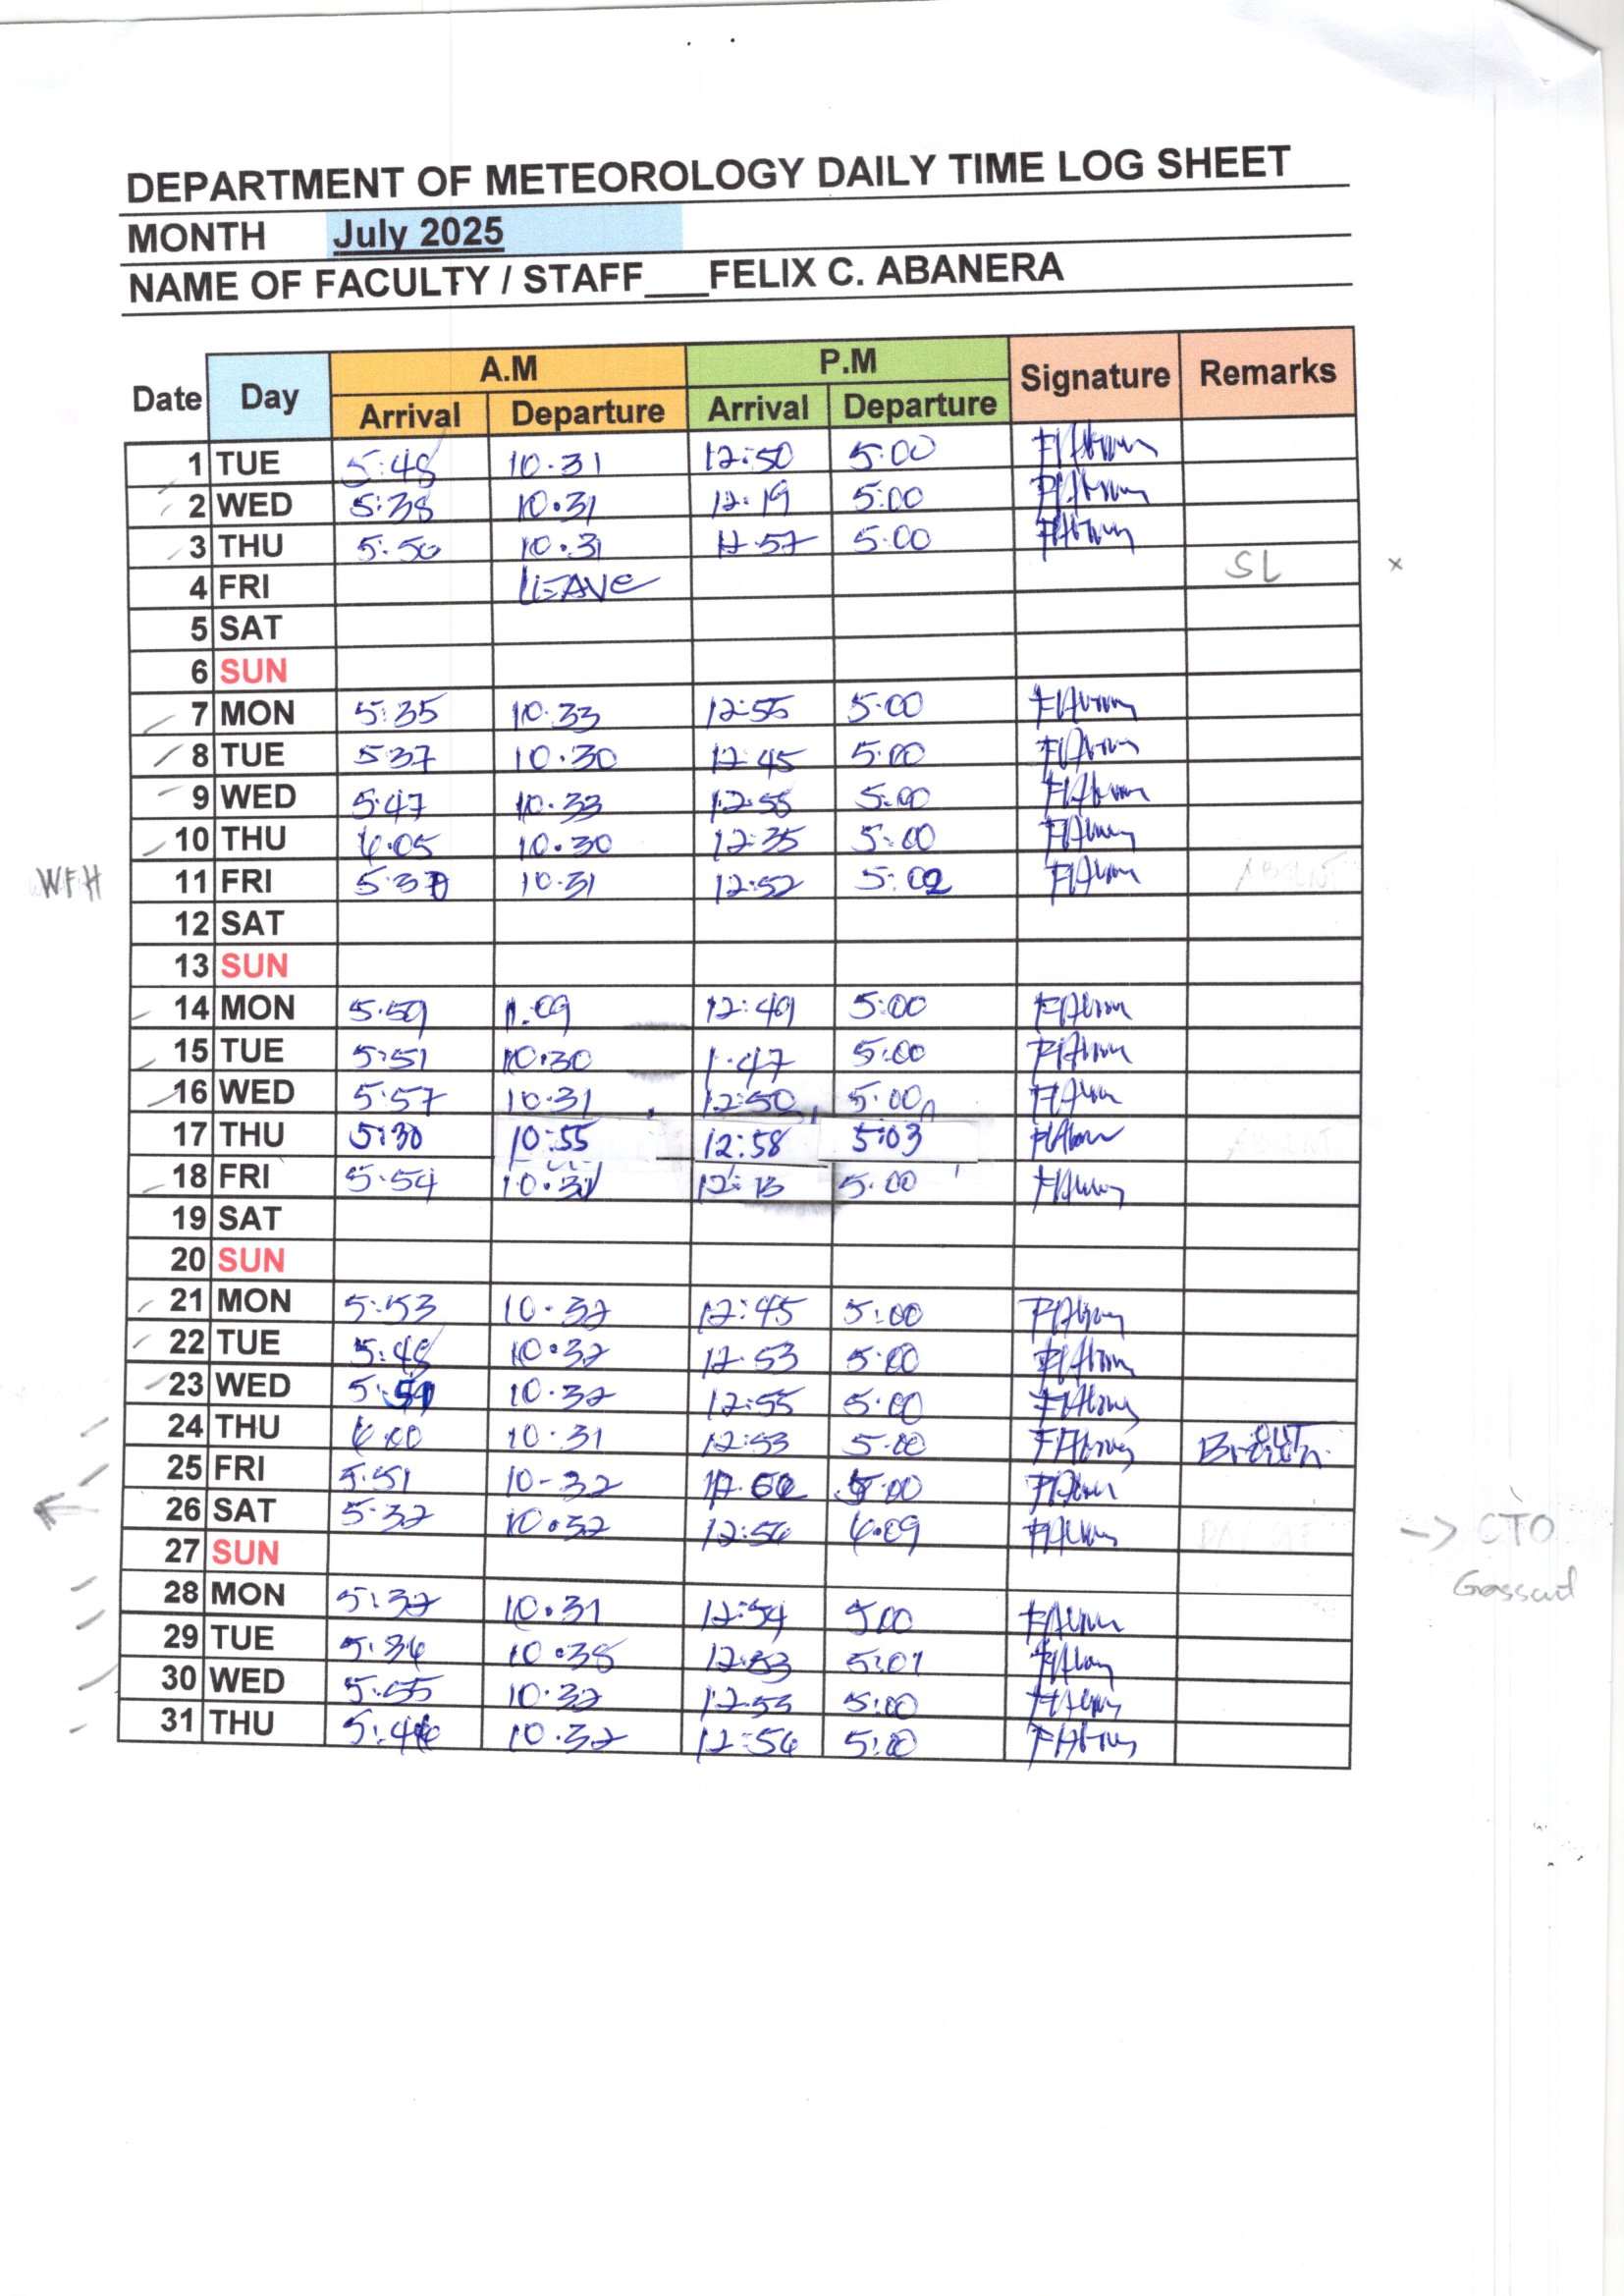 DEPARTMENT OF METEOROLOGY DAILY TIME LOG SHEET
MONTH July 2025
NAME OF FACULTY / STAFF___FELIX C. ABANERA
Date Day A.M P.M Signature Remarks
Arrival Departure Arrival Departure
1 TUE 5:48 10.31 12:50 5:00
2 WED 5:38 10.31 12:19 5:00
3 THU 5:50 10.31 11:57 5:00
4 FRI LEAVE SL x
5 SAT
6 SUN
7 MON 5:35 10:33 12:55 5:00
8 TUE 5:37 10.30 12:45 5:00
9 WED 5:47 10.33 12:55 5:00
10 THU 6:05 10.30 12:35 5:00
WFH 11 FRI 5:37 10.31 12:52 5:02 ABSENT
12 SAT
13 SUN
14 MON 5:59 1:09 12:49 5:00
15 TUE 5:51 10:30 1:47 5:00
16 WED 5:57 10:31 12:50 5:00
17 THU 5:30 10:55 12:58 5:03
18 FRI 5:54 10:31 12:13 5:00
19 SAT
20 SUN
21 MON 5:53 10.32 12:45 5:00
22 TUE 5:48 10.32 12:53 5:00
23 WED 5:51 10.32 12:55 5:00
24 THU 6:00 10.31 12:53 5:00
25 FRI 5:51 10-32 5:00
26 SAT 5:32 10.32 12:56 4:09 -> CTO
27 SUN Grasscut
28 MON 5:32 10.31 12:54 5:00
29 TUE 5:36 10.38 12:53 5:01
30 WED 5:55 10.32 12:53 5:00
31 THU 10.32 12:56 5:00